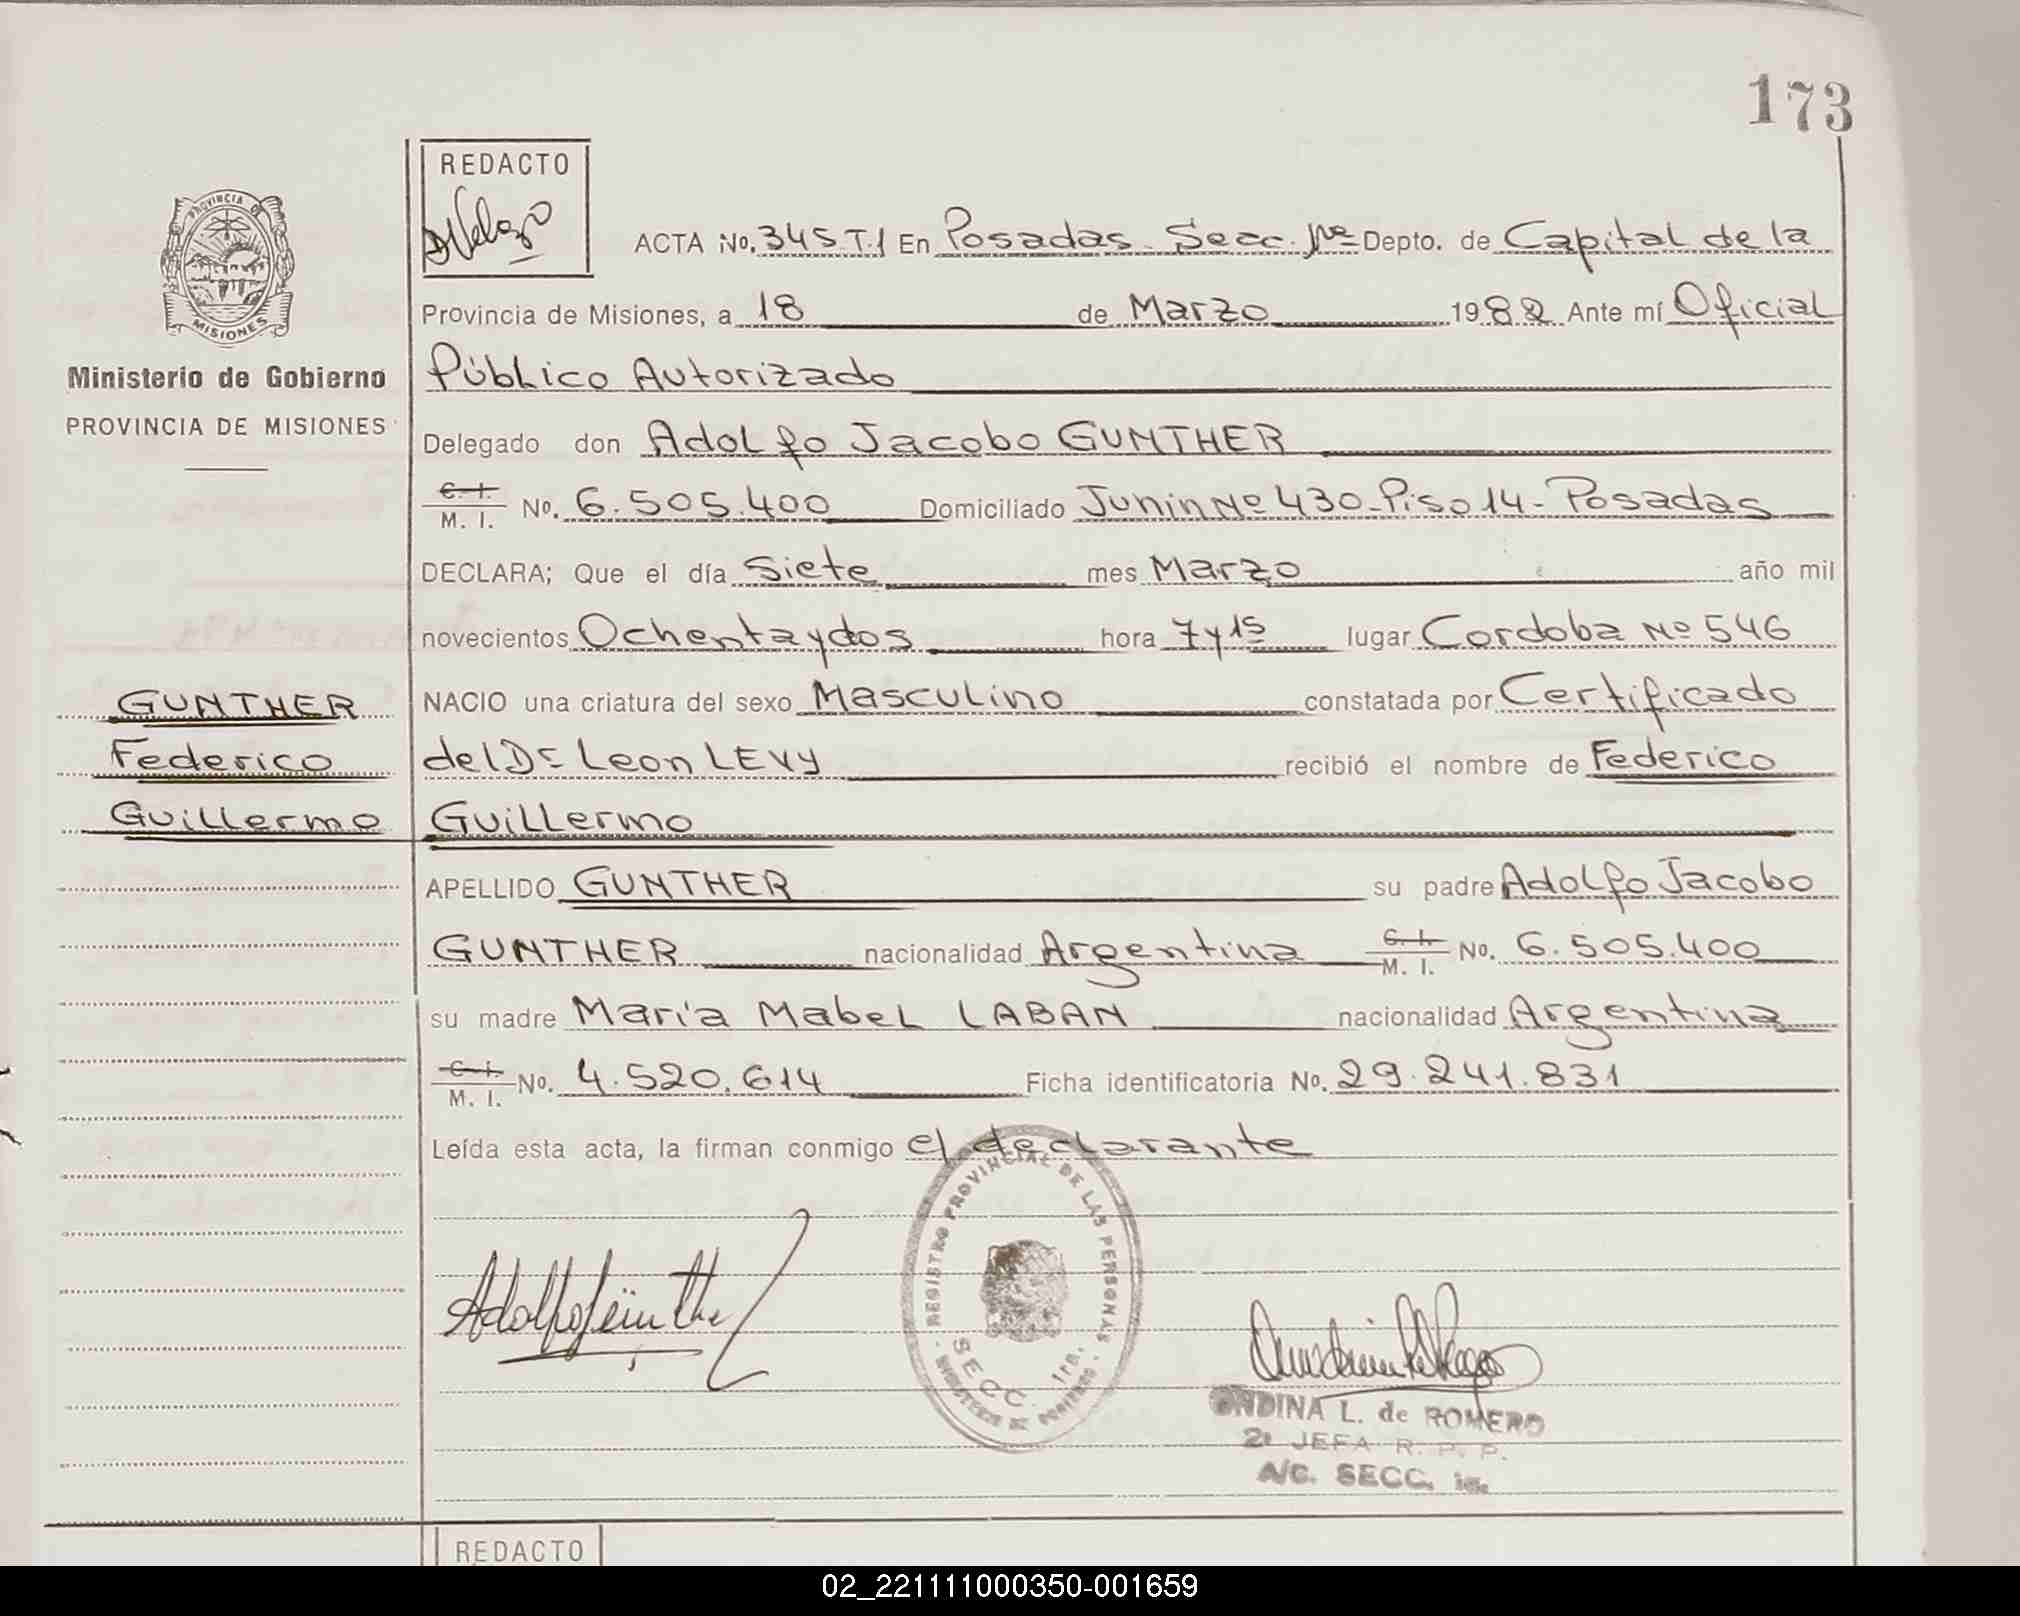 173
REDACTO
ACTA No. 345 T.1 En Posadas - Secc. 1ra Depto. de Capital de la
PROVINCIA DE
MISIONES
Provincia de Misiones, a 18 de Marzo 1982 Ante mí Oficial
Ministerio de Gobierno
Público Autorizado
PROVINCIA DE MISIONES
Delegado don Adolfo Jacobo GUNTHER
C. I.
M. I. No. 6.505.400 Domiciliado Junin Nº 430 - Piso 14 - Posadas
DECLARA; Que el día Siete mes Marzo año mil
novecientos Ochenta y dos hora 7 y 15 lugar Cordoba Nº 546
GUNTHER NACIO una criatura del sexo Masculino constatada por Certificado
Federico del Dr Leon LEVY recibió el nombre de Federico
Guillermo Guillermo
APELLIDO GUNTHER su padre Adolfo Jacobo
GUNTHER nacionalidad Argentina C. I.
M. I. No. 6.505.400
su madre María Mabel LABAN nacionalidad Argentina
C. I.
M. I. No. 4.520.614 Ficha identificatoria No. 29.241.831
Leída esta acta, la firman conmigo el declarante
REGISTRO PROVINCIAL DE LAS PERSONAS
SECC. 1ra.
ONDINA L. de ROMERO
2ª JEFA R. P. P.
A/C. SECC. 1ra.
REDACTO
02_221111000350-001659